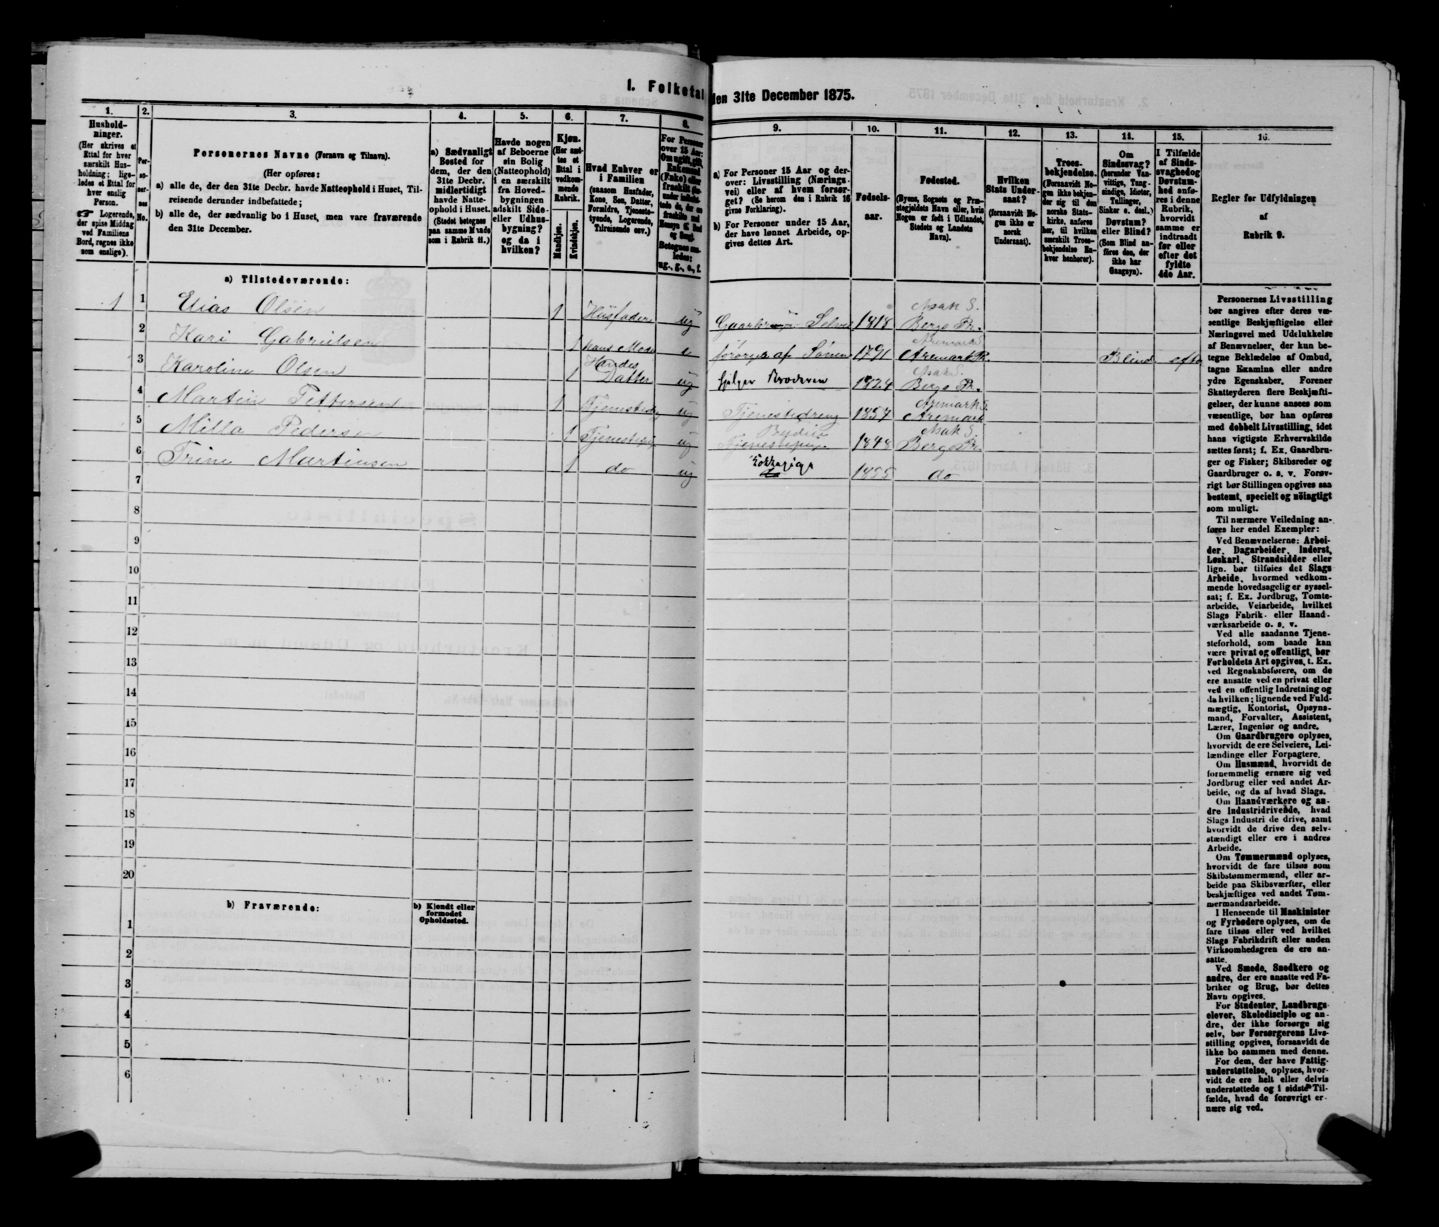 I. Folketal den 31te December 1875.
1.
Husholdninger.
(Her skrives et Ettal for hver særskilt Husholdning; ligeledes et Ettal for hver enslig Person.
☞ Logerende, der spise Middag ved Familiens Bord, regnes ikke som enslige).
2.
Personernes No.
3.
Personernes Navne (Fornavn og Tilnavn).
(Her opføres:
a) alle de, der den 31te Decbr. havde Natteophold i Huset, Tilreisende derunder indbefattede;
b) alle de, der sædvanlig bo i Huset, men vare fraværende den 31te December.
4.
a) Sædvanligt Bosted for dem, der den 31te Decbr. midlertidigt havde Natteophold i Huset.
(Stedet betegnes paa samme Maade som i Rubrik 11.)
5.
Havde nogen af Beboerne sin Bolig (Natteophold) i en særskilt fra Hovedbygningen adskilt Side- eller Udhusbygning? og da i hvilken?
6.
Kjøn.
(Her sættes et Ettal i vedkommende Rubrik.
Mandkjøn.
Kvindekjøn.
7.
Hvad Enhver er i Familien
(saasom Husfader, Kone, Søn, Datter, Forældre, Tjenestetyende, Logerende, Tilreisende osv.)
8.
For Personer over 15 Aar:
9.
a) For Personer 15 Aar og derover: Livsstilling (Næringsvei) eller af hvem forsørget? (Se herom den i Rubrik 16 givne Forklaring).
b) For Personer under 15 Aar, der have lønnet Arbeide, opgives dettes Art.
10.
Fødselsaar.
11.
Fødested.
(Byens, Sognets og Præstegjeldets Navn eller, hvis Nogen er født i Udlandet, Stedets og Landets Navn).
12.
Hvilken Stats Undersaat?
(forsaavidt Nogen ikke er norsk Undersaat).
13.
Troesbekjendelse.
(Forsaavidt Nogen ikke bekjender sig til den norske Statskirke, anføres her, til hvilken særskilt Troesbekjendelse Enhver henhører).
14.
Om Sindssvag? (herunder Vanvittige, Tungsindige, Idioter, Tullinger, Sinker o. desl.)
Døvstum? eller Blind?
(Som Blind anføres den, der ikke har Gangsyn).
15.
I Tilfælde af Sindssvaghed og Døvstumhed anføres i denne Rubrik, hvorvidt samme er indtraadt før eller efter det fyldte 4de Aar.
16.
Regler for Udfyldningen af Rubrik 9.
a) Tilstedeværende:
1 1 Elias Olsen 1 Husfader ug Gaardbruger Selveier 1818 Asak S. Bergs Pr.
2 Kari Gabrielsen 1 hans Moder e forsørges af Sønnen 1791 Aremark S. Aremark Pr. Blind efter
3 Karoline Olsen 1 Hendes Datter ug hjelper Broderen 1824 Asak S. Bergs Pr.
4 Martin Pettersen 1 Tjenestedreng ug Tjenestedreng 1857 Aremark S. Aremark
5 Milla Pedersen 1 Tjenestepige ug Budeie Tjenestepige 1848 Asak S. Bergs Pr.
6 Trine Martinsen 1 do ug Kokkepige 1855 do
7
8
9
10
11
12
13
14
15
16
17
18
19
20
b) Fraværende:
b) Kjendt eller formodet Opholdssted.
1
2
3
4
5
6
Personernes Livsstilling bør angives efter deres væsentlige Beskjæftigelse eller Næringsvei med Udelukkelse af Benævnelser, der kun betegne Beklædelse af Ombud, tagne Examina eller andre ydre Egenskaber. Forener Skatteyderen flere Beskjæftigelser, der kunne ansees som væsentlige, bør han opføres med dobbelt Livsstilling, idet hans vigtigste Erhvervskilde sættes først; f. Ex. Gaardbruger og Fisker; Skibsreder og Gaardbruger o. s. v. Forøvrigt bør Stillingen opgives saa bestemt, specielt og nøiagtigt som muligt.
Til nærmere Veiledning anføres her endel Exempler:
Ved Benævnelserne: Arbeider, Dagarbeider, Inderst, Løskarl, Strandsidder eller lign. bør tilføies det Slags Arbeide, hvormed vedkommende hovedsagelig er sysselsat; f. Ex. Jordbrug, Tomtearbeide, Veiarbeide, hvilket Slags Fabrik- eller Haandværksarbeide o. s. v.
Ved alle saadanne Tjenesteforhold, som baade kan være privat og offentligt, bør Forholdets Art opgives, t. Ex. ved Regnskabsførere, om de ere ansatte ved en privat eller ved en offentlig Indretning og da hvilken; lignende ved Fuldmægtig, Kontorist, Opsynsmand, Forvalter, Assistent, Lærer, Ingeniør og andre.
Om Gaardbrugere oplyses, hvorvidt de ere Selveiere, Leilændinge eller Forpagtere.
Om Husmænd, hvorvidt de fornemmelig ernære sig ved Jordbrug eller ved andet Arbeide, og da af hvad Slags.
Om Haandværkere og andre Industridrivende, hvad Slags Industri de drive, samt hvorvidt de drive den selvstændigt eller ere i andres Arbeide.
Om Tømmermænd oplyses, hvorvidt de fare tilsøs som Skibstømmermænd, eller arbeide paa Skibsværfter, eller beskjæftiges ved andet Tømmermandsarbeide.
I Henseende til Maskinister og Fyrbødere oplyses, om de fare tilsøs eller ved hvilket Slags Fabrikdrift eller anden Virksomhedsgren de ere ansatte.
Ved Smede, Snedkere og andre, der ere ansatte ved Fabriker og Brug, bør dettes Navn opgives.
For Studenter, Landbrugselever, Skoledisciple og andre, der ikke forsørge sig selv, bør Forsørgerens Livsstilling opgives, forsaavidt de ikke bo sammen med denne.
For dem, der have Fattigunderstøttelse, oplyses, hvorvidt de ere helt eller delvis understøttede og i sidste Tilfælde, hvad de forøvrigt ernære sig ved.